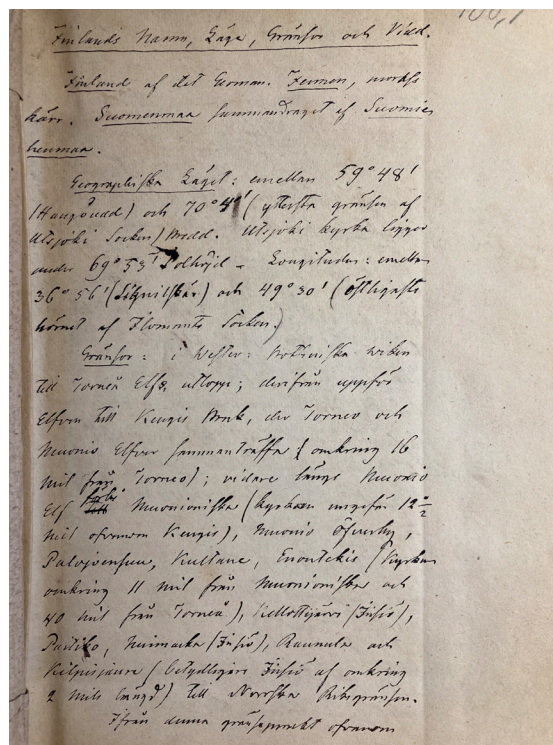 Finlands Namn, Läge, Gränsor och Vidd.
Finland af det German. Fennen, morass
kärr. Suomenmaa sammandraget af Suomie
henmaa.
Geographiska Läget: emellan 59° 48'
(Hangöudd) och 70° (yttersta gränsen af
Utsjoki Socken) bredd. Utsjoki kyrka ligger
under 69° 53' Polhöjd - Longituden: emellan
36° 56' (Signilskär) och 49° 30' (östligaste
hörnet af Ilomants Socken.)
Gränsor: i Wester: Bottniska wiken
till Torneå Elfs utlopp; derifrån uppför
Elfven till Kengis Bruk, der Torneo och
Muonio Elfver sammanträffa (omkring 16
mil från Torneo); vidare längs Muonio
Elf förbi Muonioniska (kyrkan ungefär 12
mil ofvanom Kengis), Muonio Öfverby,
Palojoensuu, Kultane, Enontekis (Kyrkan
omkring 11 mil från Muonioniska och
40 mil från Torneå), Kellottijärvi (Insjö),
Naimakka (Insjö), Raunula och
Kilpisjaure (betydligare Insjö af omkring
2 mils längd) till Norrska Riksgränsen.
Ifrån denna gränsepunkt ofvanom